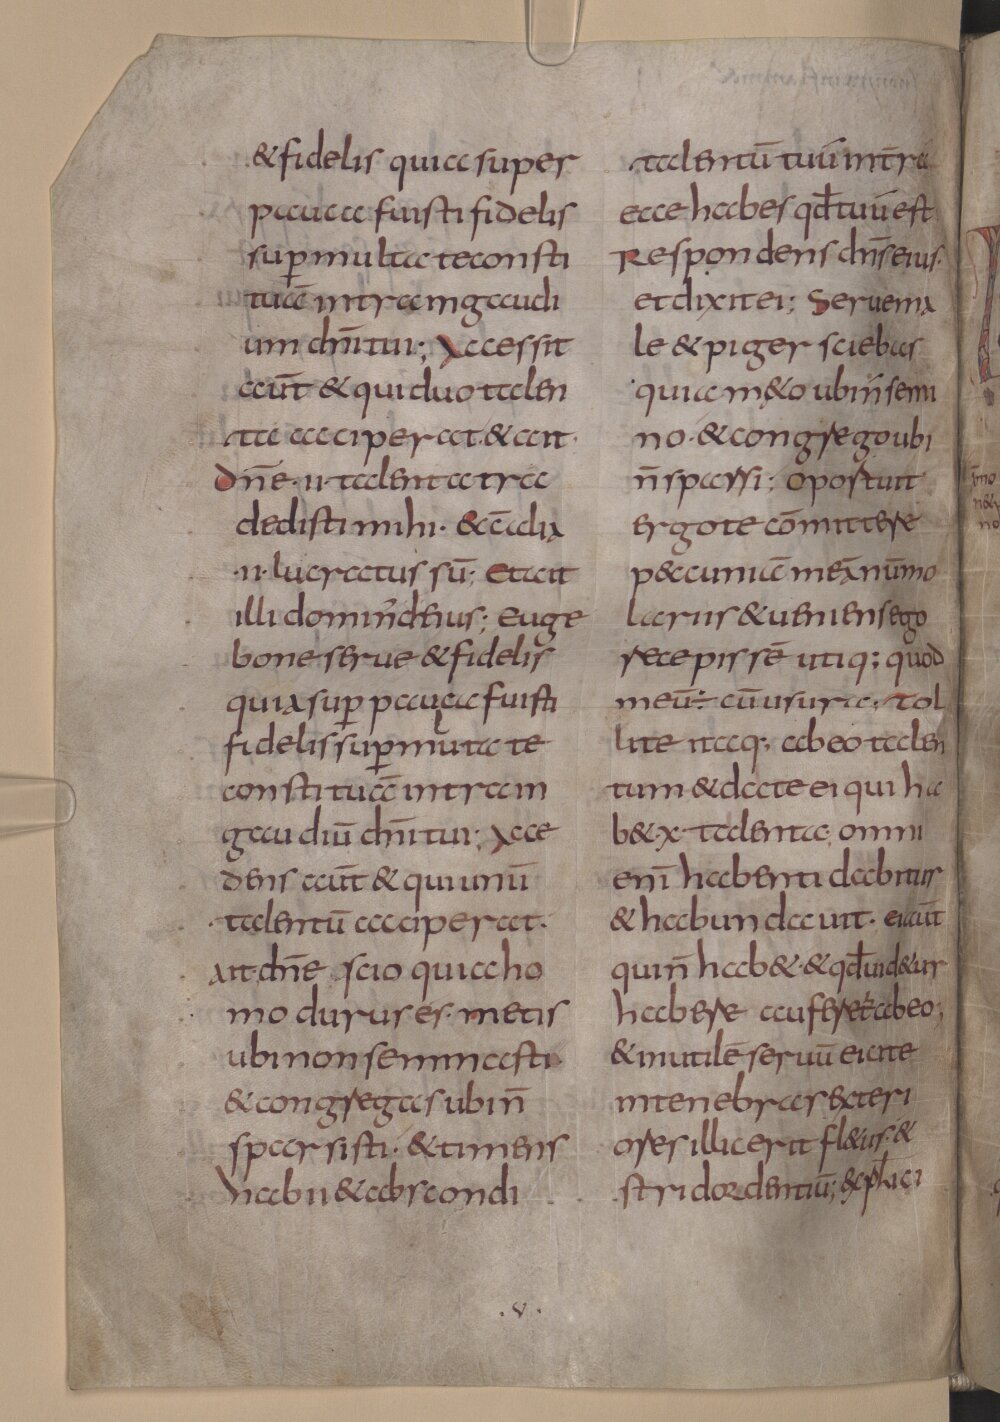 & fidelis quia super
pauca fuisti fidelis
sup̱ multa te consti
tuā intra in gaudi
um dn̄i tui; Accessit
aut̄ & qui duo talen
ta acciperat. & ait.
Dn̄e .ii. talenta tra
didisti mihi. & ecc̄ alia
.ii. lucratus sū; Et ait
illi domin̄ eius; Euge
bone serue & fidelis
quia sup̱ pauca fuisti
fidelis sup̱ multa te
constituā intra in
gaudiū dn̄i tui; Acce
dens aut̄ & qui unū
talentū acciperat.
Ait. dn̄e scio quia ho
mo durus es. metis
ubi non seminasti
& congregas ubi n̄
sparsisti. & timens
habii & abscondi
talentū tuū in tr̄ra
ecce habes qd̄ tuū est
Respondens dn̄s eius.
et dixit ei; Serue ma
le & piger sciebas
quia meto ubi n̄ semi
no. & congrego ubi
n̄ sparsi; oportuit
ergo te cōmittere
peccuniā meā nūmo
lariis & ueniens ego
recepissē utiq; quod
meū ÷ cū usura. Tol
lite itaq; ab eo talen
tum & date ei qui ha
b& .x. talenta. omni
enī habenti dabitur
& habundauit. ei aut̄
qui n̄ hab& . & qd̄ uid&ur
habere auferet ab eo;
& inutilē seruū eicite
in tenebras exteri
ores illic erit fl&us. &
stridor dentiū;
. v .